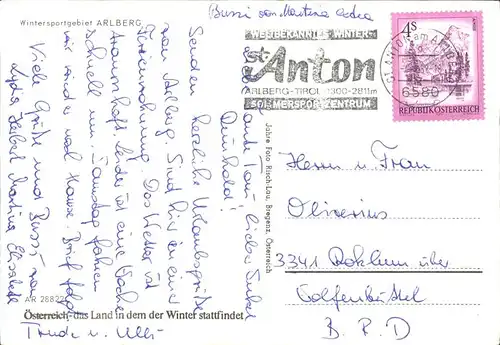 Wintersportgebiet ARLBERG
Bussi von Martina
WELTBEKANNTES WINTER-
St. Anton
ARLBERG-TIROL 1300-2811m
SOMMERSPORTZENTRUM
ST. ANTON am ARLBERG
6580
4S
REPUBLIK ÖSTERREICH
Liebe Tante, lieber Onkel
Senden herzliche Urlaubsgrüße
vom Arlberg. Sind hier in einer
Ferienwohnung. Das Wetter ist
traumhaft. Leider ist eine Woche
schnell um. Samstag fahren
wir wieder nach Hause. Brief folgt.
Viele Grüße und Bussi von
Lydia, Martina, Elisabeth
Trude u. Ulli
Herrn u. Frau
Oliverius
3341 über
Wolfenbüttel
B.R.D
Jahre Foto Risch-Lau, Bregenz, Österreich
AR 28822
Österreich - das Land in dem der Winter stattfindet